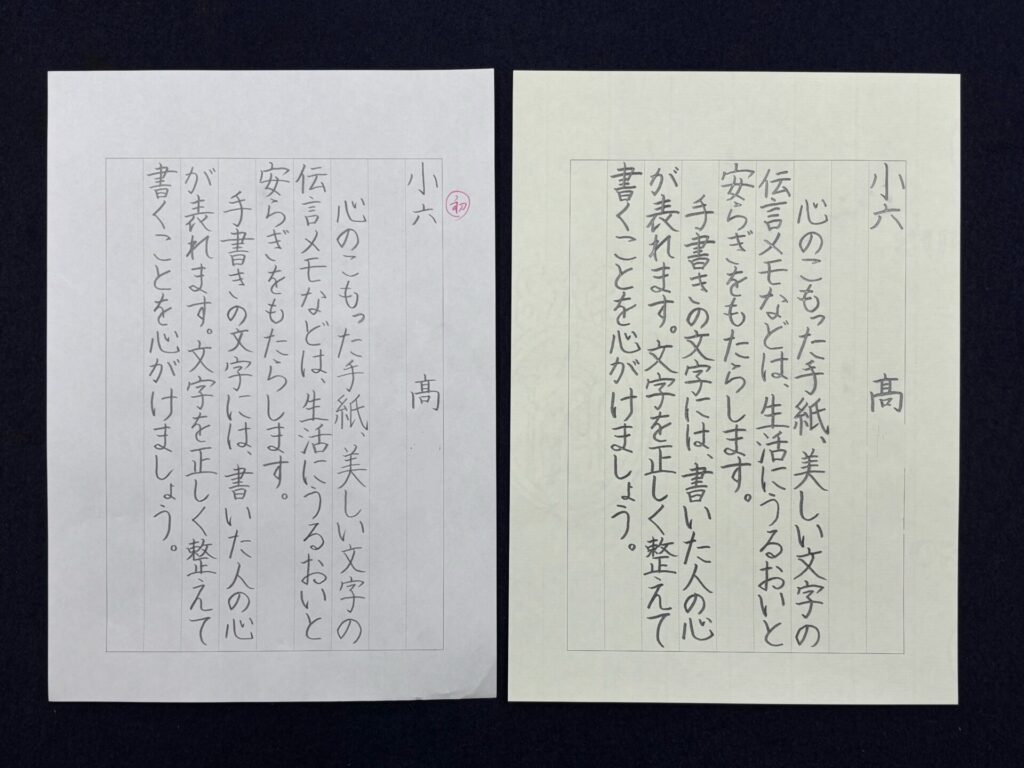 初
小六 髙
心のこもった手紙、美しい文字の
伝言メモなどは、生活にうるおいと
安らぎをもたらします。
手書きの文字には、書いた人の心
が表れます。文字を正しく整えて
書くことを心がけましょう。
小六 髙
心のこもった手紙、美しい文字の
伝言メモなどは、生活にうるおいと
安らぎをもたらします。
手書きの文字には、書いた人の心
が表れます。文字を正しく整えて
書くことを心がけましょう。